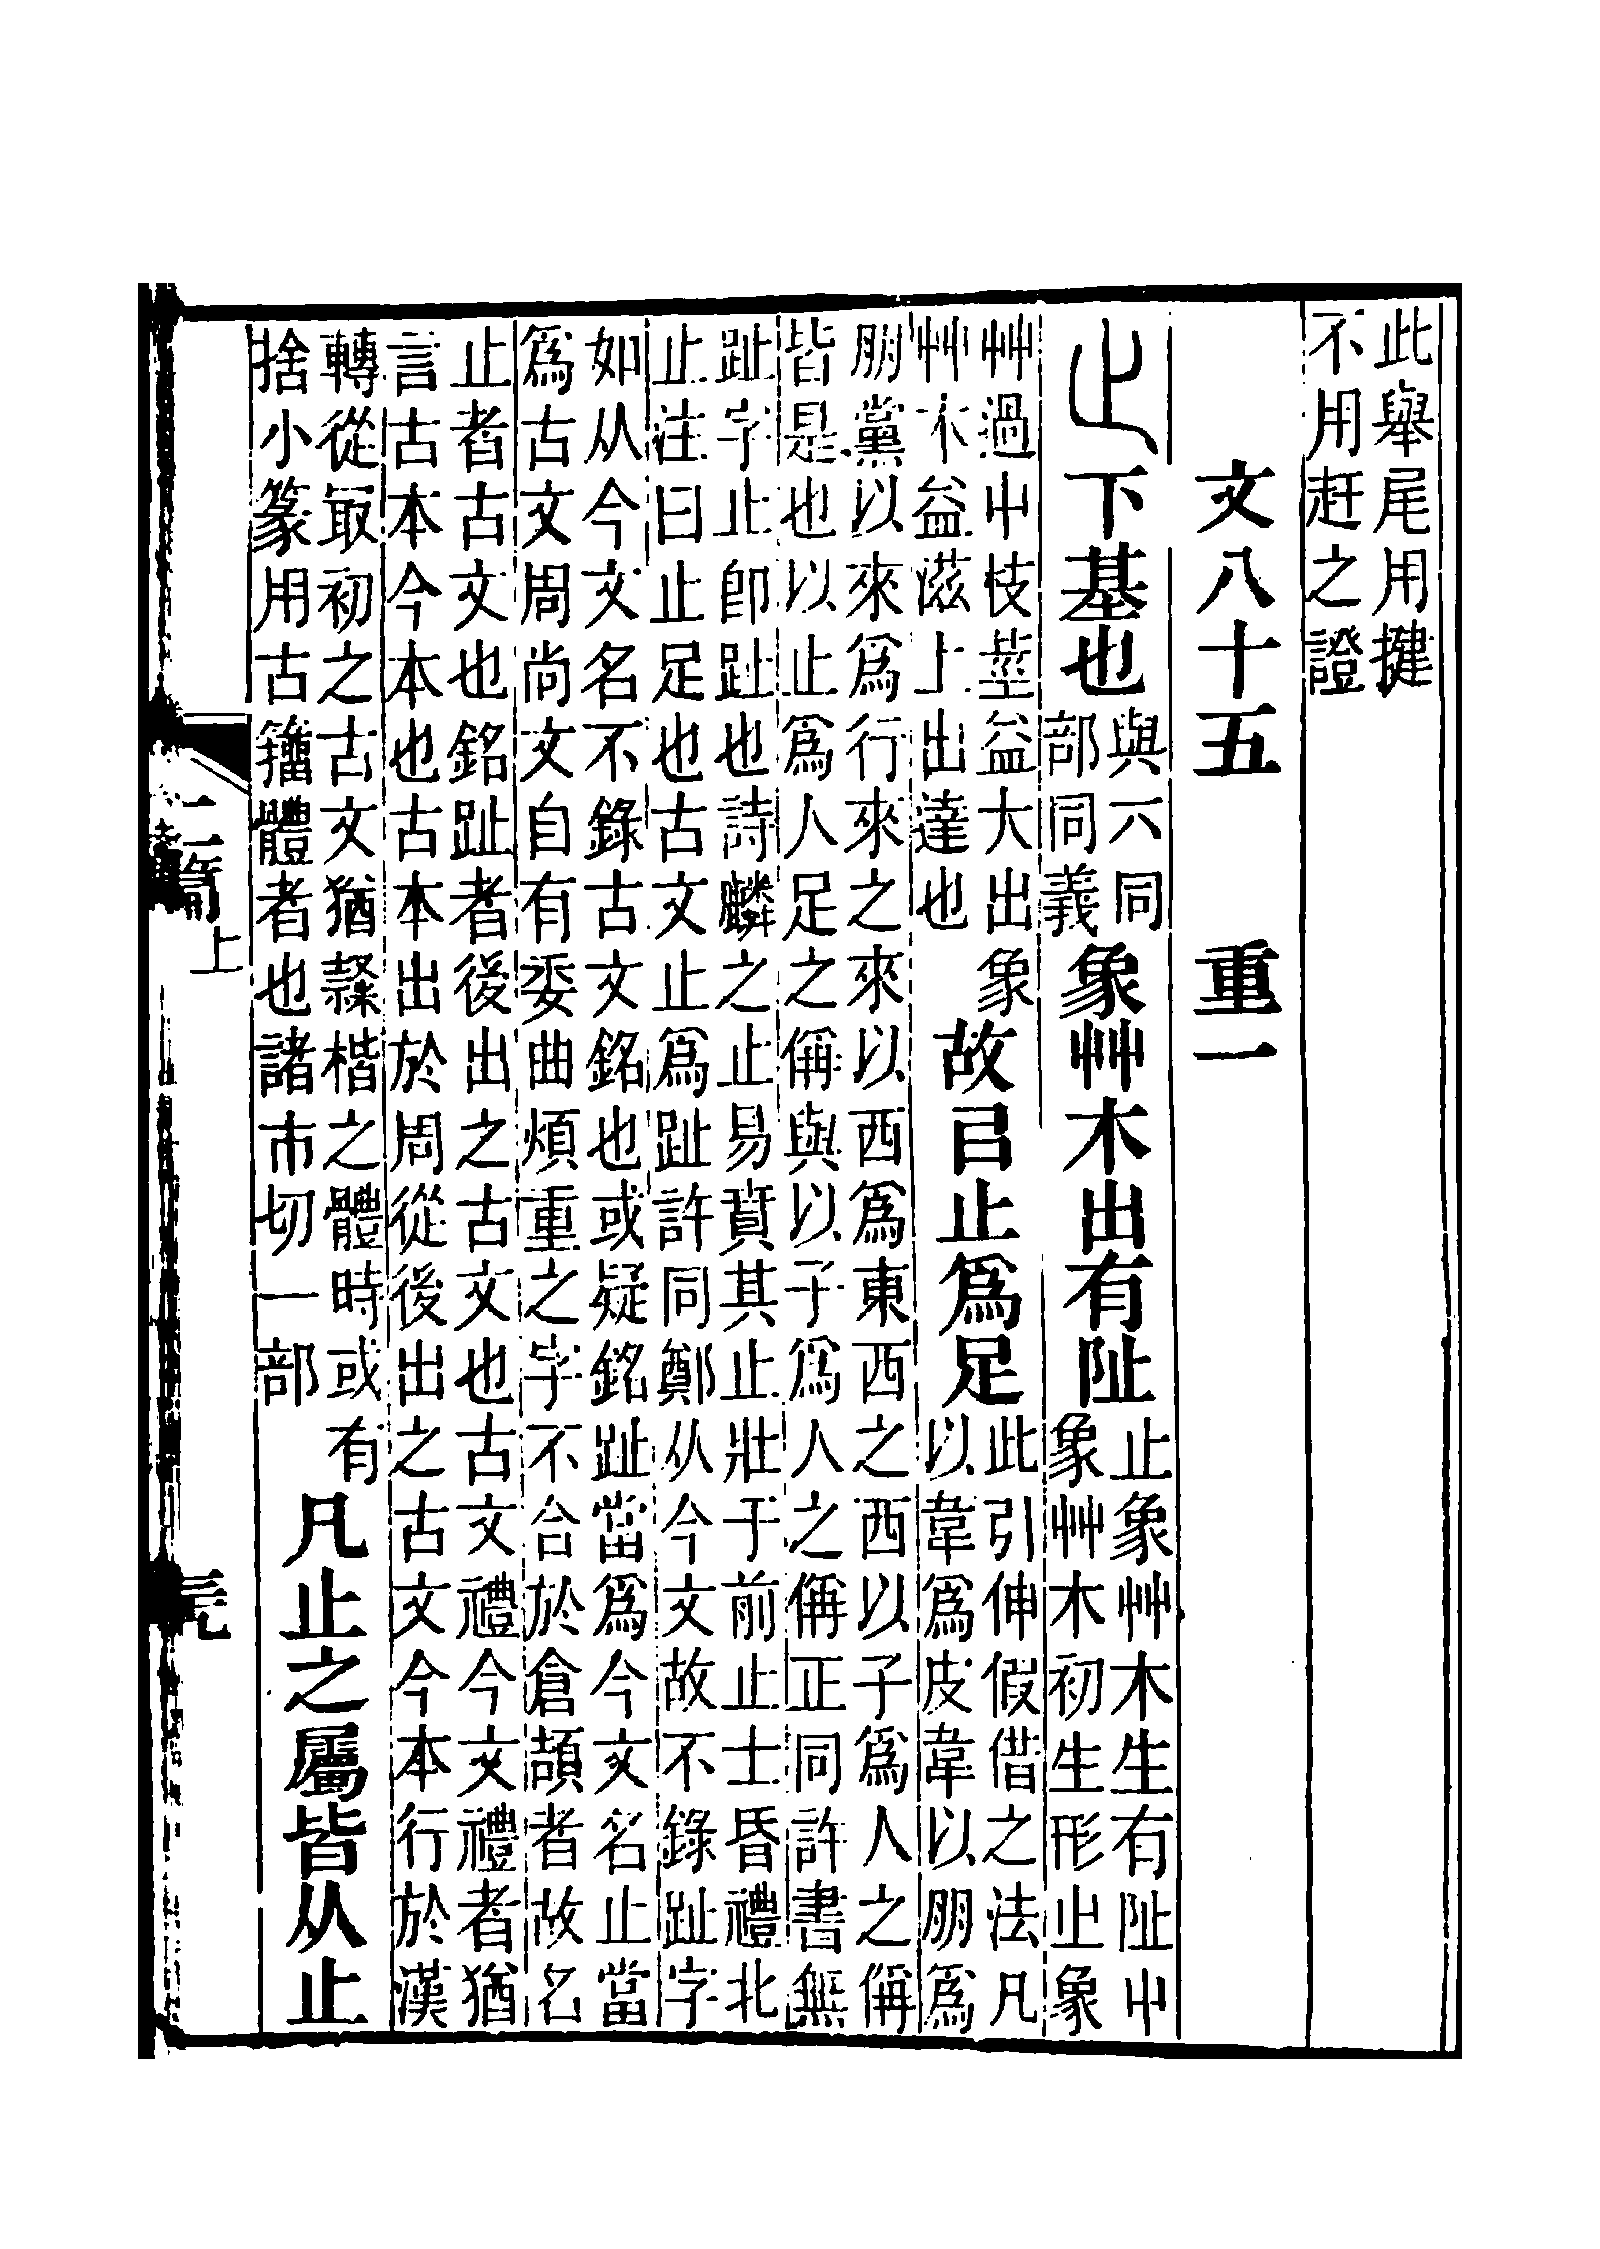 此舉尾用揵
不用赶之證
文八十五　重一
止下基也與丌同部同義象艸木出有阯止象艸木生有阯屮象艸木初生形止象
艸過屮枝莖益大出象艸木益滋上出達也故㠯止爲足此引伸假借之法凡以韋爲皮韋以朋爲
朋黨以來爲行來之來以西爲東西之西以子爲人之偁
皆是也以止爲人足之偁與以子爲人之偁正同許書無
趾字止卽趾也詩麟之止易賁其止壯于前止士昏禮北
止注曰止足也古文止爲趾許同鄭从今文故不錄趾字
如从今文名不錄古文銘也或疑銘趾當爲今文名止當
爲古文周尚文自有委曲煩重之字不合於倉頡者故名
止者古文也銘趾者後出之古文也古文禮今文禮者猶
言古本今本也古本出於周從後出之古文今本行於漢
轉從冣初之古文猶隸楷之體時或有捨小篆用古籒體者也諸市切一部凡止之屬皆从止
二篇上